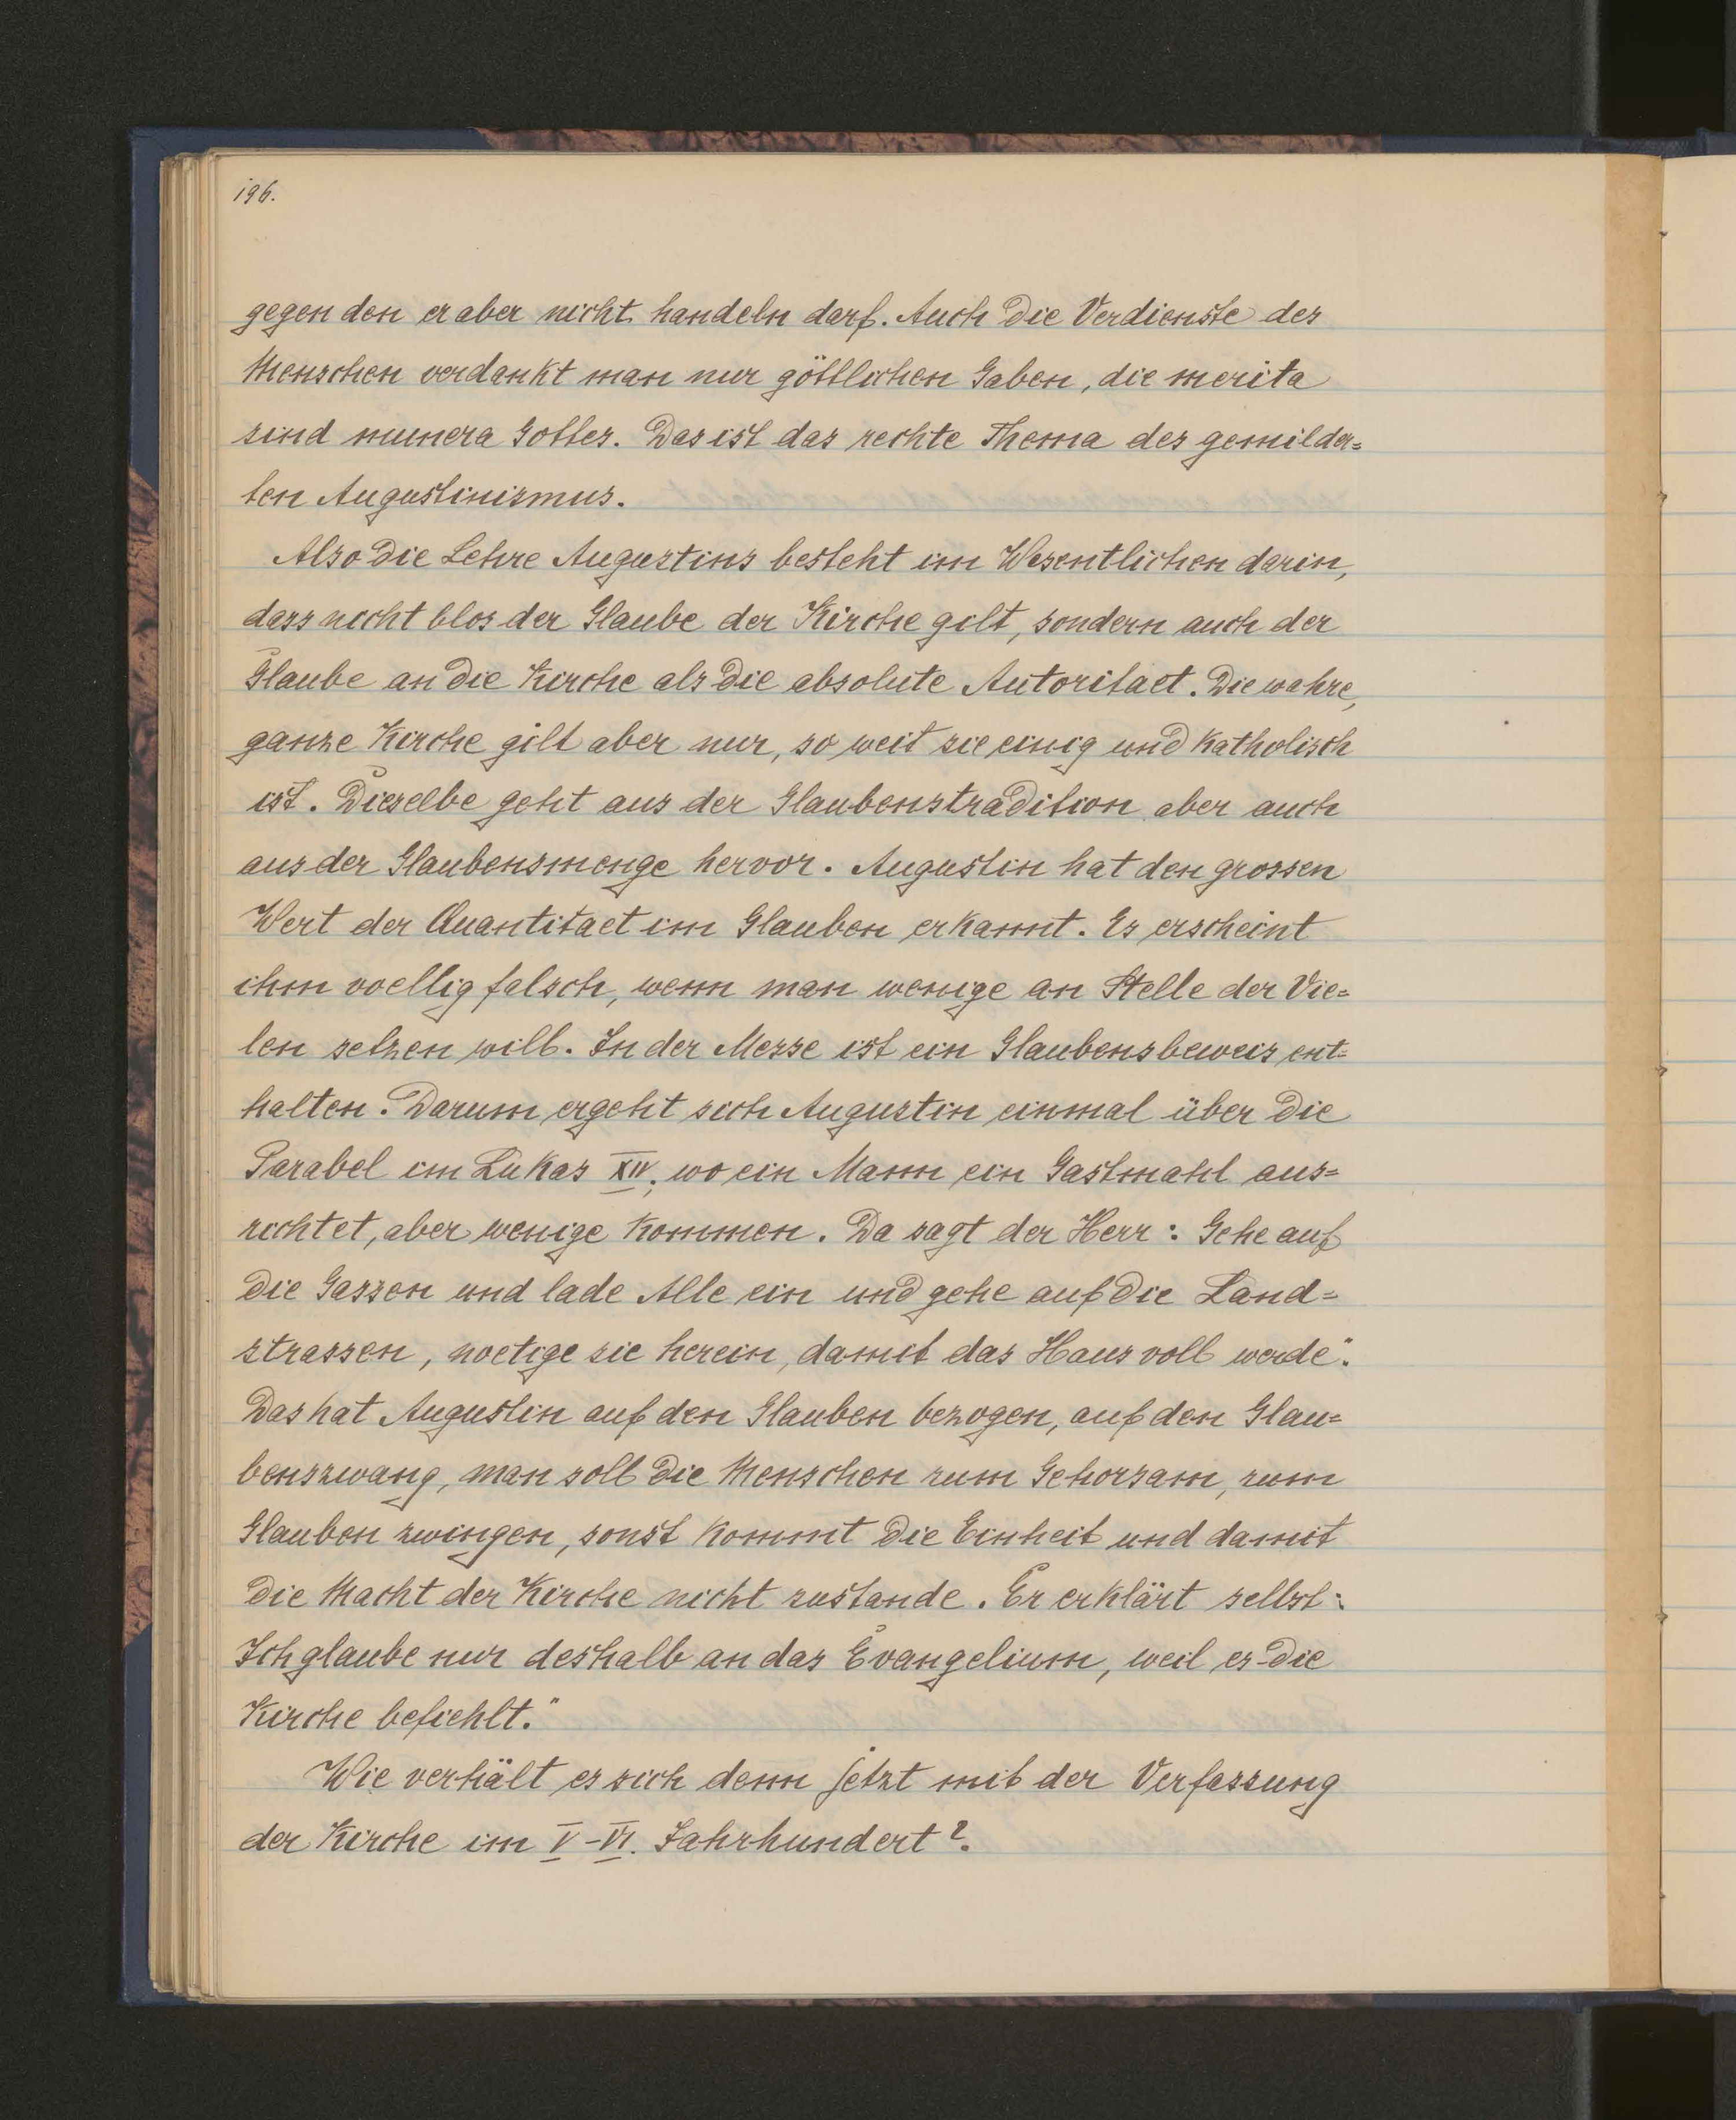 196.
gegen den er aber nicht handeln darf. Auch die Verdienste des
Menschen verdankt man nur göttlichen Gaben, die merita
sind munera Gottes. Das ist das rechte Thema des gemilder=
ten Augustinismus.
Also die Lehre Augustins besteht im Wesentlichen darin,
dass nicht blos der Glaube der Kirche gilt, sondern auch der
Glaube an die Kirche als die absolute Autoritaet. Die wahre,
ganze Kirche gilt aber nur, so weit sie einig und katholisch
ist. Dieselbe geht aus der Glaubenstradition aber auch
aus der Glaubensmenge hervor. Augustin hat den grossen
Wert der Quantitaet im Glauben erkannt. Es erscheint
ihm voellig falsch, wenn man wenige an Stelle der Vie=
len setzen will. In der Messe ist ein Glaubensbeweis ent=
halten. Darum ergeht sich Augustin einmal über die
Parabel im Lukas XIV; wo ein Mann ein Gastmahl aus=
richtet, aber wenige kommen. Da sagt der Herr: Gehe auf
die Gassen und lade Alle ein und gehe auf die Land=
strassen, noetige sie herein, damit das Haus voll werde".
Das hat Augustin auf den Glauben bezogen, auf den Glau=
benszwang, man soll die Menschen zum Gehorsam, zum
Glauben zwingen, sonst kommt die Einheit und damit
die Macht der Kirche nicht zustande. Er erklärt selbst:
Ich glaube nur deshalb an das Evangelium, weil es die
Kirche befiehlt."
Wie verhält es sich denn jetzt mit der Verfassung
der Kirche im V-VI. Jahrhundert?